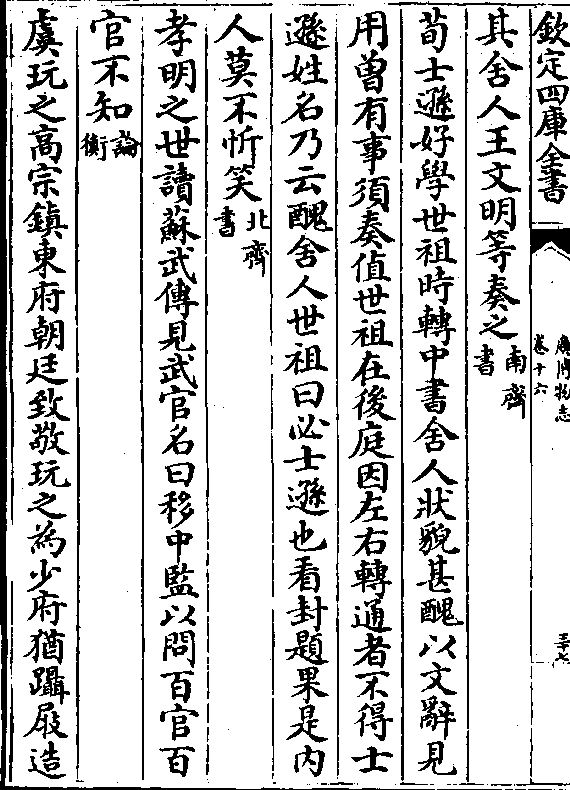 欽定四庫全書
廣博物志
卷十六
三十七
其舍人王文明等奏之南齊書
荀士遜好學世祖時轉中書舍人狀貌甚醜以文辭見
用曽有事須奏值世祖在後庭因左右轉通者不得士
遜姓名乃云醜舍人世祖曰必士遜也看封題果是内
人莫不忻笑北齊書
孝明之世讀蘇武傳見武官名曰移中監以問百官百
官不知論衡
虞玩之高宗鎮東府朝廷致敬玩之為少府猶躡屐造